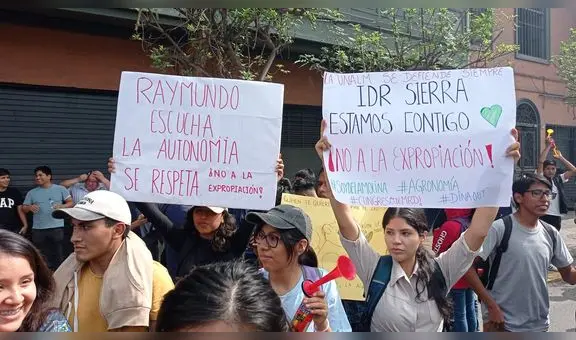 RAYMUNDO
ESCUCHA
LA AUTONOMÍA
SE RESPETA
¡NO A LA
EXPROPIACIÓN!
LA UNALM SE DEFIENDE SIEMPRE
IDR SIERRA
ESTAMOS CONTIGO
¡NO A LA EXPROPIACIÓN!
#SOMOSLAMOLINA #AGRONOMÍA
#DINA OUT